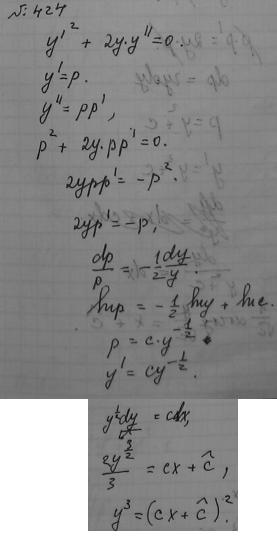 № 424
y'² + 2y·y'' = 0.
y' = p.
y'' = pp',
p² + 2y·pp' = 0.
2ypp' = -p².
2yp' = -p,
dp/p = -1/2 dy/y.
lnp = -1/2 lny + lnc.
p = c·y^(-1/2)
y' = cy^(-1/2).
y^(1/2)dy = cdx,
2y^(3/2)/3 = cx + ĉ,
y³ = (cx + ĉ)².